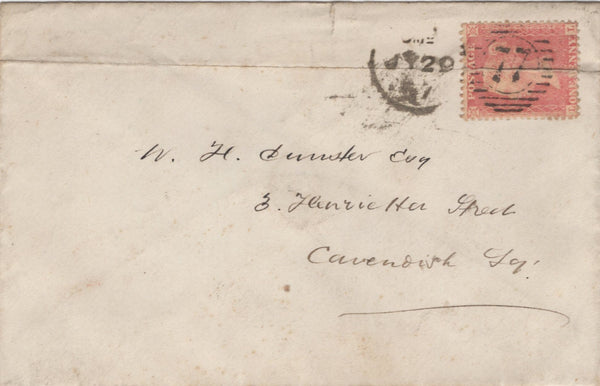 JY 29
77
POSTAGE
W. H. Dunster Esq
3. Henrietta Street
Cavendish Sq.